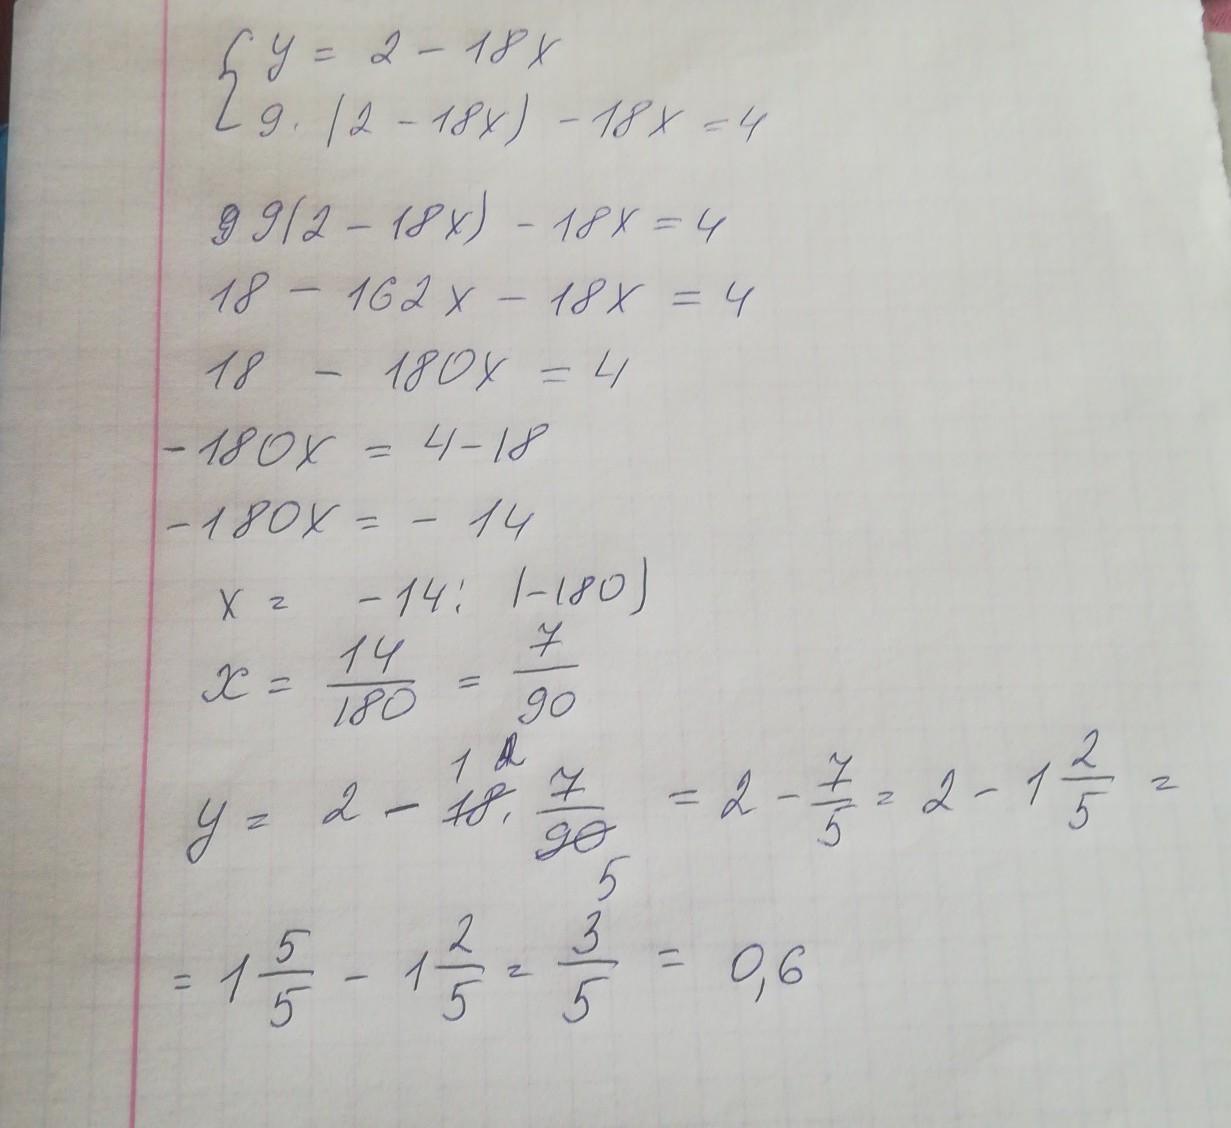 { y = 2 - 18x
9 · (2 - 18x) - 18x = 4
9 9(2 - 18x) - 18x = 4
18 - 162x - 18x = 4
18 - 180x = 4
-180x = 4 - 18
-180x = - 14
x = -14 : (-180)
x = 14/180 = 7/90
1 2
y = 2 - 18 · 7/90 = 2 - 7/5 = 2 - 1 2/5 =
5
= 1 5/5 - 1 2/5 = 3/5 = 0,6